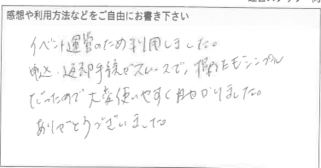 感想や利用方法などをご自由にお書き下さい
イベント運営のため利用しました。
申込・返却手続がスムーズで、操作もシンプル
だったので大変使いやすく助かりました。
ありがとうございました。